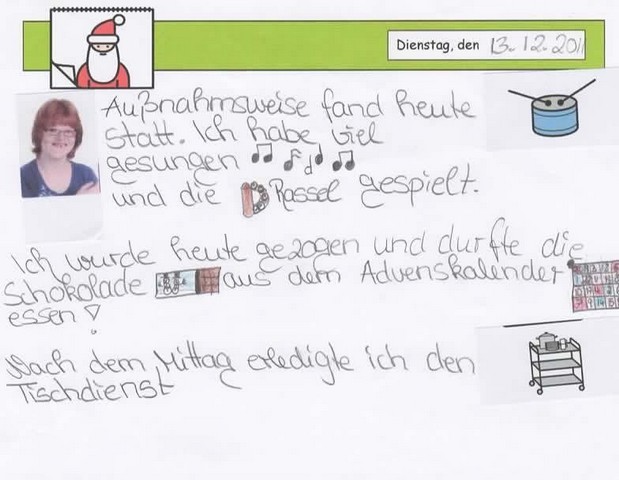 Dienstag, den 13.12.2011
Außnahmsweise fand heute
statt. Ich habe viel
gesungen
und die Rassel gespielt.
Ich wurde heute gezogen und durfte die
Schokolade aus dem Advenskalender
essen!
Nach dem Mittag erledigte ich den
Tischdienst